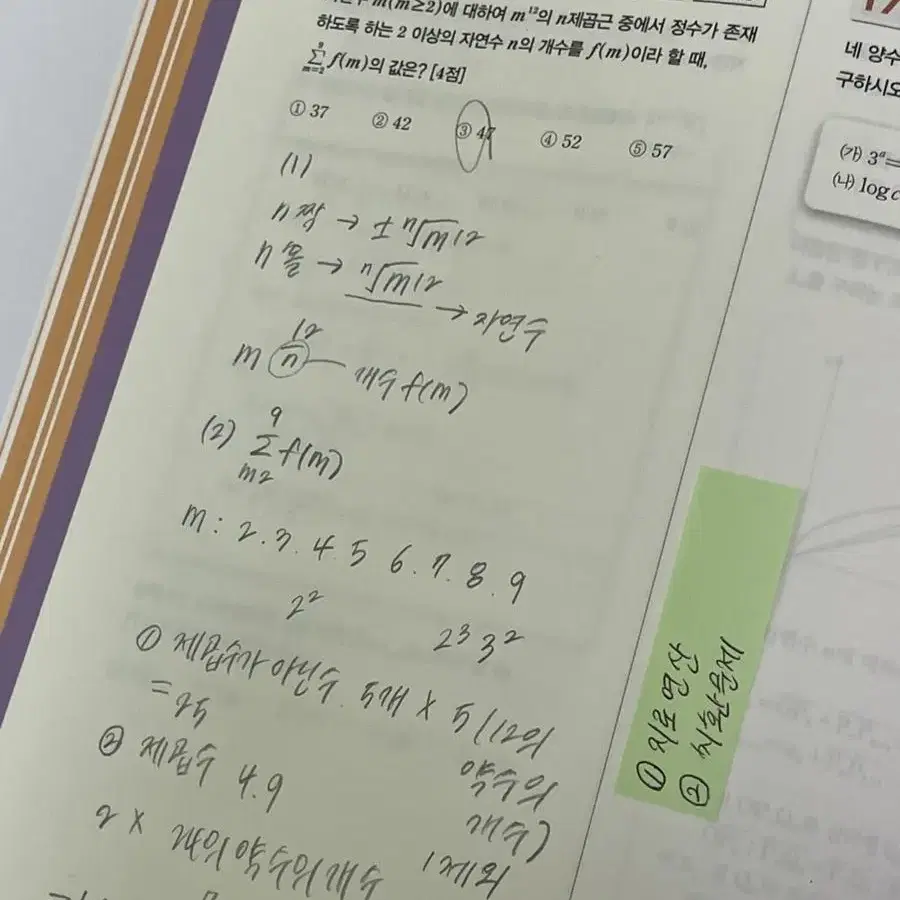 m(m≥2)에 대하여 m¹²의 n제곱근 중에서 정수가 존재
하도록 하는 2 이상의 자연수 n의 개수를 f(m)이라 할 때,
9 Σ m=2 f(m)의 값은? [4점]
① 37 ② 42 ③ 47 ④ 52 ⑤ 57
(1)
n 짝 → ± ⁿ√m12
n 홀 → ⁿ√m12
→ 자연수
m 12 n 개수 f(m)
(2) 9 Σ m2 f(m)
m : 2. 3. 4. 5 6. 7. 8. 9
2² 2³ 3²
① 제곱수가 아닌수. 5개 × 5 (12의
약수의
개수)
1제외
= 25
② 제곱수 4. 9
2 × 24의 약수의 개수
네 양수
구하시오
(가) 3ᵃ=
(나) log c
①
②